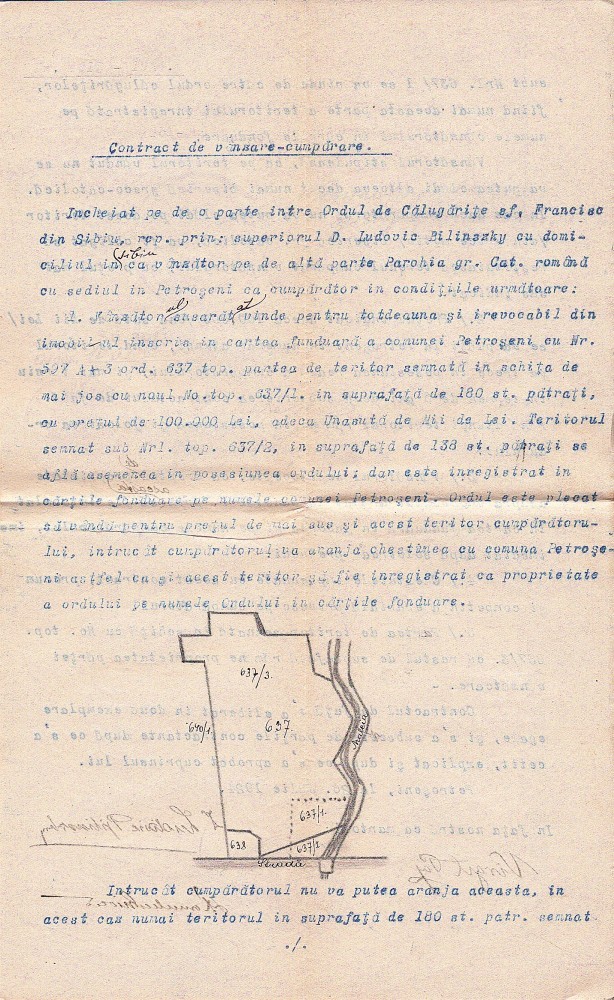 Contract de vânzare-cumpărare.
Incheiat pe de o parte intre Ordul de Călugărițe sf, Francisc
din Sibiu, rep. prin: superiorul D. Ludovic Bilinszky cu domi-
Sibiu
ciliul in ca vînzător pe de altă parte Parohia gr. Cat. română
cu sediul in Petroșeni ca cumpărător in condițiile următoare:
1. Vînzătorul susarătat vinde pentru totdeauna și irevocabil din
imobilul inscris in cartea funduară a comunei Petroșeni cu Nr.
597 A+3 ord. 637 top. partea de teritor semnată in schița de
mai jos cu noul No.top. 637/1. in suprafață de 180 st. pătrați,
cu prețul de 100.000 Lei, adeca Unasută de Mii de Lei. Teritorul
semnat sub Nrl. top. 637/2, in suprafață de 138 st. pătrați se
află asemenea in posesiunea ordului; dar este inregistrat in
cărțile fonduare pe numele comunei Petroșeni. Ordul este plecat
să vândă pentru prețul de mai sus și acest teritor cumpărătoru-
lui, intrucât cumpărătorul va aranja chestinea cu comuna Petroșe-
ni astfel ca și acest teritor să fie inregistrat ca proprietate
a ordului pe numele Ordului in cărțile fonduare.
637/3.
640/1.
637.
637/1.
638
637/2
Strada
Intrucât cumpărătorul nu va putea aranja aceasta, in
acest caz numai teritorul in suprafață de 180 st. patr. semnat
./.